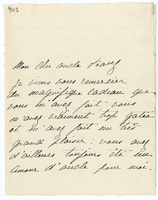 903
Mon cher oncle Franz
Je viens vous remercier
du magnifique cadeau que
vous m'avez fait. vous
m'avez vraiment trop gâtée
et m'avez fait un très
grand plaisir: vous avez
d'ailleurs toujours été un
amour d'oncle pour moi.